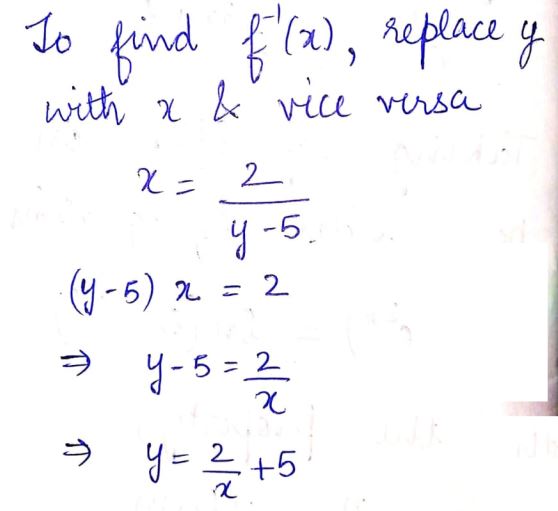 To find f⁻¹(x), replace y
with x & vice versa
x = 2/(y-5)
(y-5) x = 2
⇒ y-5 = 2/x
⇒ y = 2/x +5